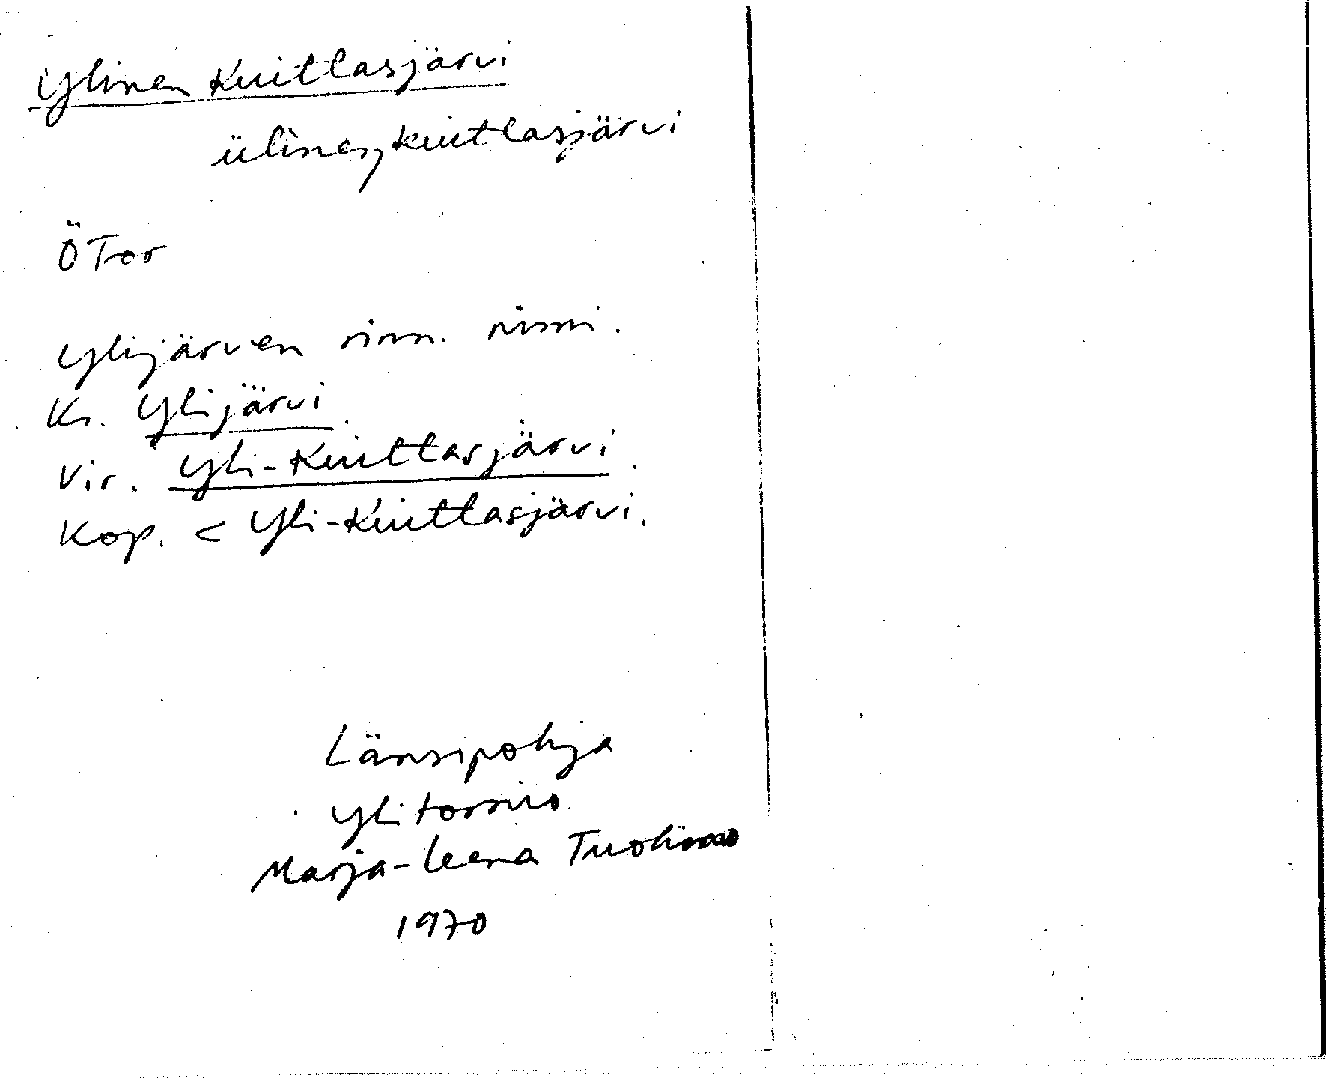 Ylinen Kuittasjärvi
ülineŋkuittasjärvi
ÖTor
Ylijärven rinn. nimi.
Ks. Ylijärvi.
Vir. Yli-Kuittasjärvi.
Kop. < Yli-Kuittasjärvi.
Länsipohja
Ylitornio
Marja-Leena
1970